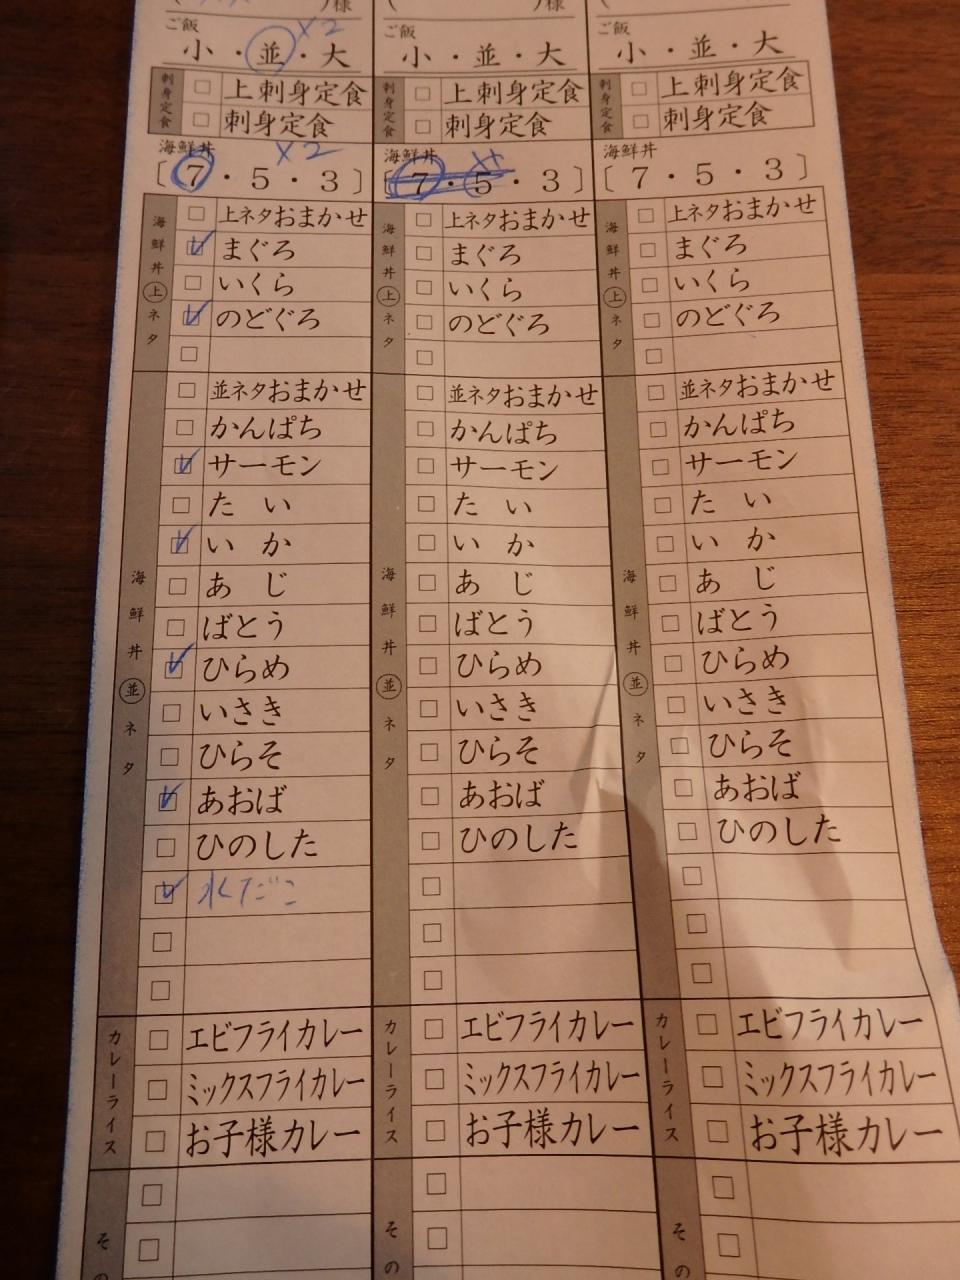 )様
ご飯 ×2
小・並・大
刺身定食
上刺身定食
刺身定食
海鮮丼 ×2
〔7・5・3〕
海鮮丼上ネタ
上ネタおまかせ
まぐろ
いくら
のどぐろ
海鮮丼並ネタ
並ネタおまかせ
かんぱち
サーモン
たい
いか
あじ
ばとう
ひらめ
いさき
ひらそ
あおば
ひのした
水だこ
カレーライス
エビフライカレー
ミックスフライカレー
お子様カレー
その
)様
ご飯
小・並・大
刺身定食
上刺身定食
刺身定食
海鮮丼
〔7・5・3〕
海鮮丼上ネタ
上ネタおまかせ
まぐろ
いくら
のどぐろ
海鮮丼並ネタ
並ネタおまかせ
かんぱち
サーモン
たい
いか
あじ
ばとう
ひらめ
いさき
ひらそ
あおば
ひのした
カレーライス
エビフライカレー
ミックスフライカレー
お子様カレー
その
(
)様
ご飯
小・並・大
刺身定食
上刺身定食
刺身定食
海鮮丼
〔7・5・3〕
海鮮丼上ネタ
上ネタおまかせ
まぐろ
いくら
のどぐろ
海鮮丼並ネタ
並ネタおまかせ
かんぱち
サーモン
たい
いか
あじ
ばとう
ひらめ
いさき
ひらそ
あおば
ひのした
カレーライス
エビフライカレー
ミックスフライカレー
お子様カレー
その